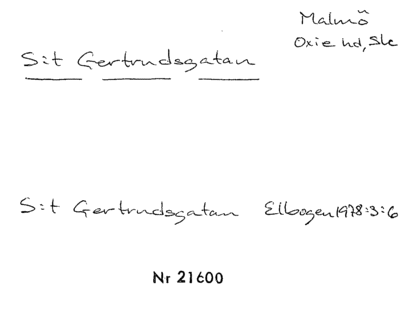 Malmö
Oxie hd, Sk
S:t Gertrudsgatan
S:t Gertrudsgatan Elbogen 1978:3:6
Nr 21600